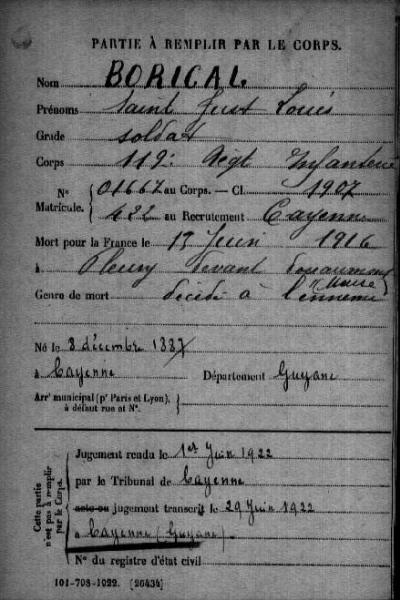 PARTIE À REMPLIR PAR LE CORPS.
Nom BORICAL
Prénoms Saint Just Louis
Grade soldat
Corps 112e Régt Infanterie
N° 01667 au Corps. — Cl. 1907
Matricule. 422 au Recrutement Cayenne
Mort pour la France le 13 Juin 1916
à Fleury devant Douaumont
Meuse
Genre de mort décédé à l'ennemi
Né le 8 décembre 1887
à Cayenne Département Guyane
Arr' municipal (p' Paris et Lyon),
à défaut rue et N°.
Cette partie
n'est pas à remplir
par le Corps.
Jugement rendu le 1er Juin 1922
par le Tribunal de Cayenne
acte ou jugement transcrit le 29 Juin 1922
à Cayenne (Guyane).
N° du registre d'état civil
101-708-1922. [26434]